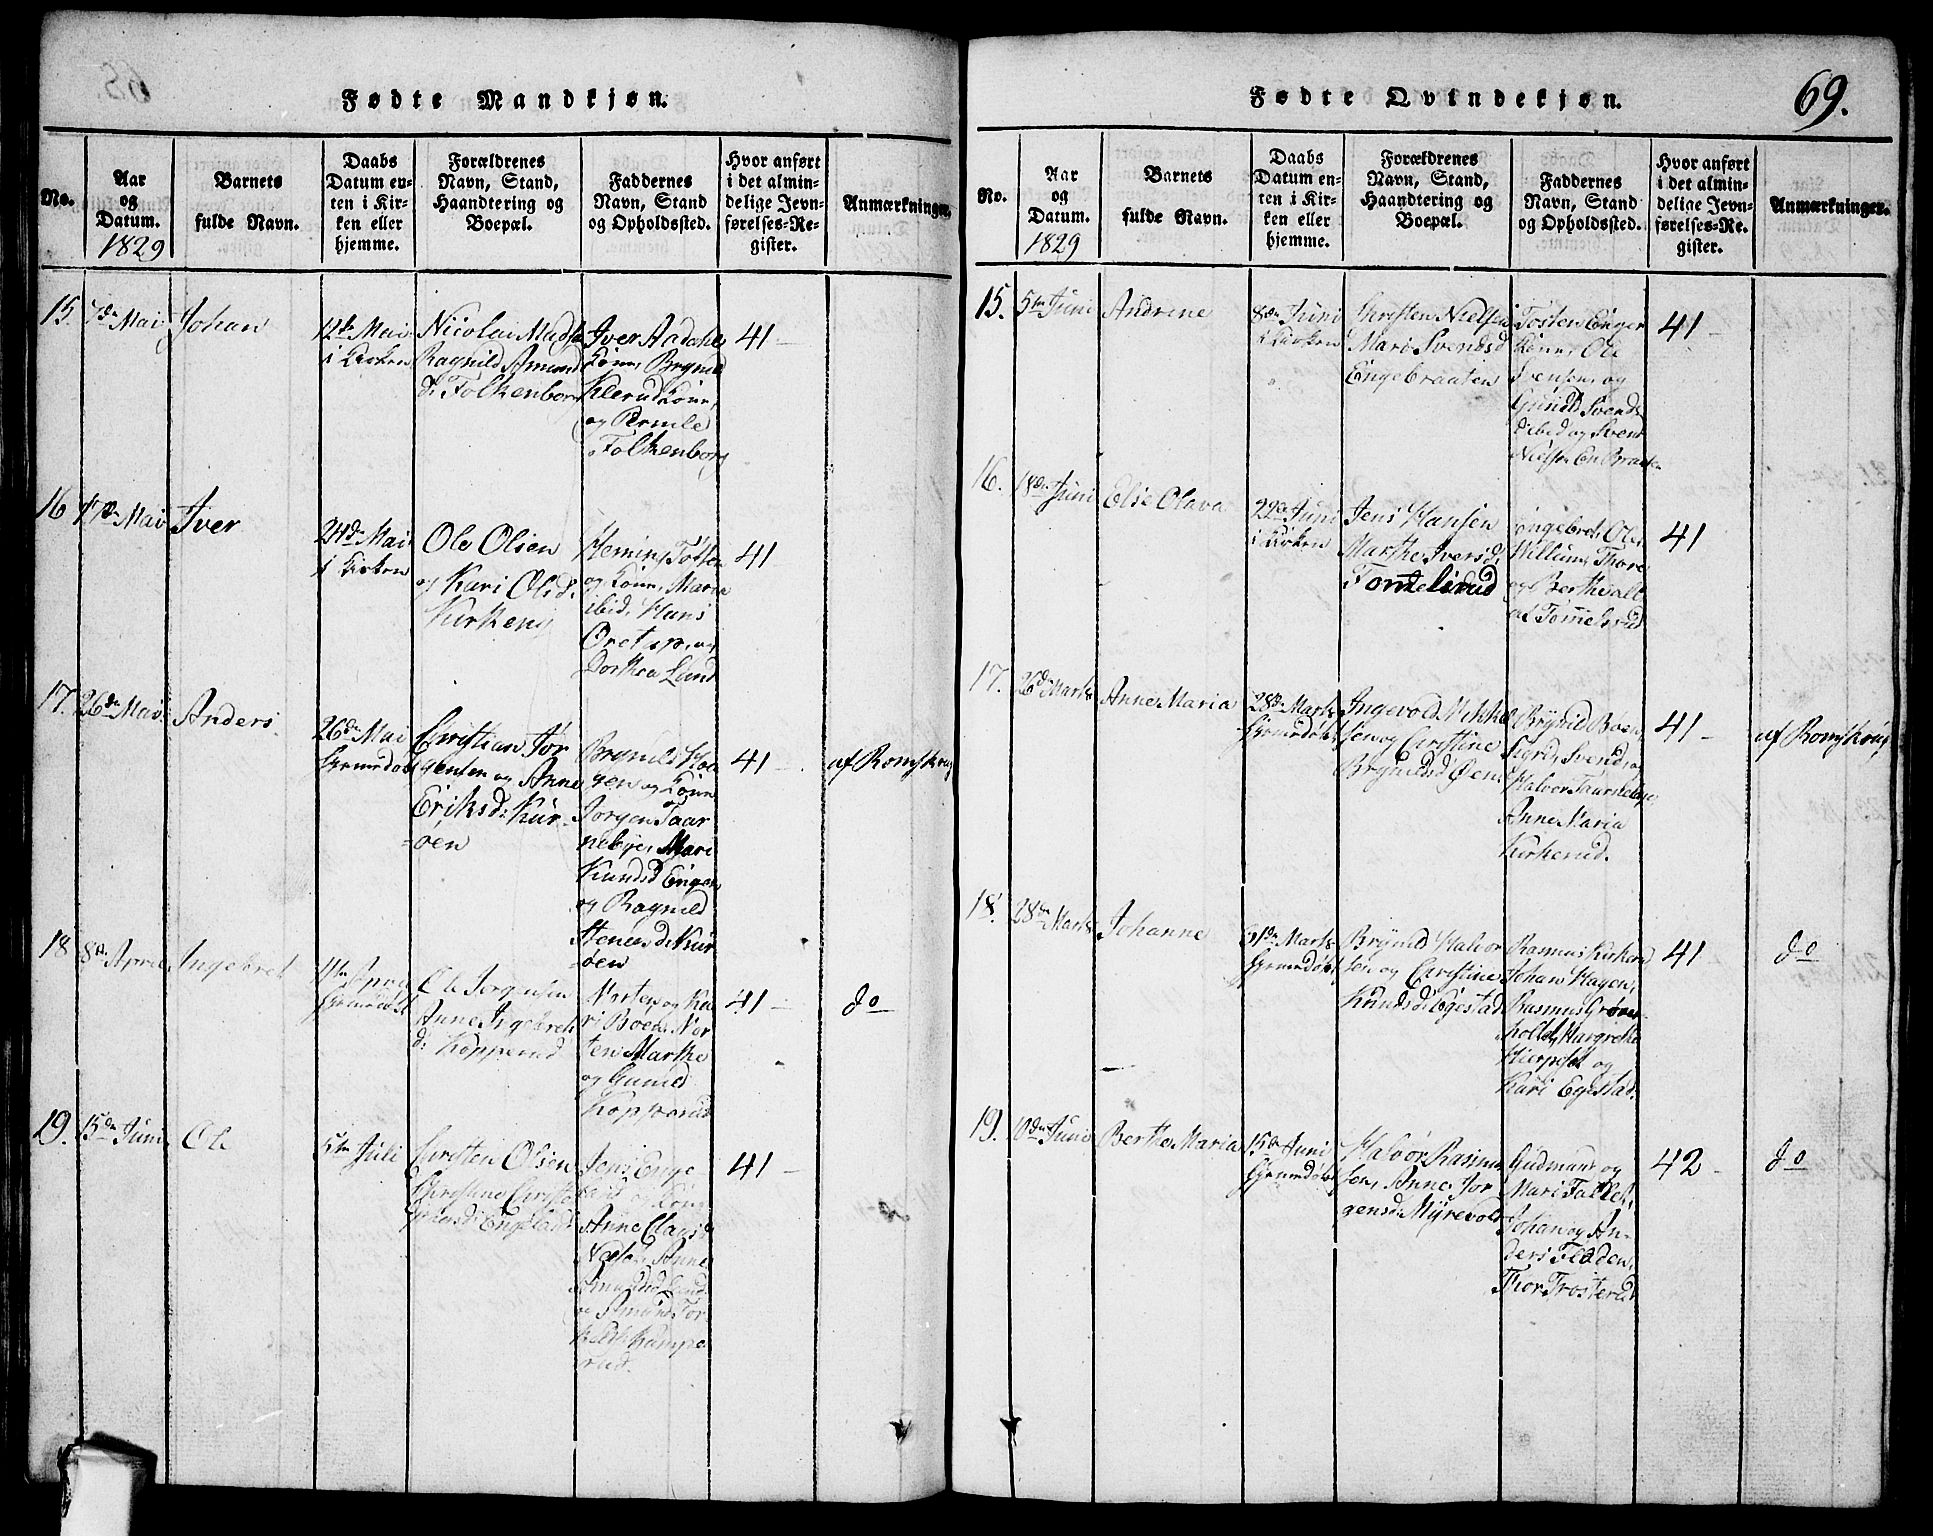 Fødte Mandkjøn.
No.
Aar
og
Datum.
1829
Barnets
fulde Navn.
Daabs
Datum en-
ten i Kir-
ken eller
hjemme.
Forældrenes
Navn, Stand,
Haandtering og
Boepæl.
Faddernes
Navn, Stand
og Opholdssted.
Hvor anført
i det almin-
delige Jevn-
førelses-Re-
gister.
Anmærkninger.
15.
7de Mai
Johan
12te Mai
i Kirken
Nicolai Mads
Ragnild Amund
d. Folkenborg
Iver Aadahl
Kone, Brynild
Klerud Kone,
og Pernile
Folkenborg
41
16
17de Mai
Iver
24de Mai
i Kirken
Ole Olsen
og Kari Olsd.
Kirkeng
Heming
og Kone, Maria
ibid, Hans
Dorthea Lund
41
17.
26de Mai
Anders
26de Mai
Christian Jør
gensen og Anne
Eriksd: Kur-
øen
Brynild
gen og Kone
Jørgen Taar
nebye, Mari
Knudsd Enger
og Ragnild
Stenersd: Kur
øen
41
af Romskoug
18
8de April
Ingebret
11te April
Ole Jørgensen
Anne Ingebret
d: Kopperud
Morten og Ka
ri Boen, Mor
ten, Marthe
og Gunild
Kopperud
41
do
19.
15de Juni
Ole
5te Juli
Christen Olsen
Christine Christo
Jens Enge
Anne Clausd
Anne
Amund Tor
41
Fødte Qvindekjøn.
69.
No.
Aar
og
Datum.
1829
Barnets
fulde Navn.
Daabs
Datum en-
ten i Kir-
ken eller
hjemme.
Forældrenes
Navn, Stand,
Haandtering og
Boepæl.
Faddernes
Navn, Stand
og Opholdssted.
Hvor anført
i det almin-
delige Jevn-
førelses-Re-
gister.
Anmærkninger.
15.
5te Juni
Andrine
8de Juni
i Kirken
Christen Nielsen
Mari Svendsd
Engebraaten
Tosten Enger
Kone, Ole
Svensen, og
Gunild Svends
ibid og Svend
Niels
41
16.
18de Juni
Else Olava
22de Juni
i Kirken
Jens Hansen
Marthe Iversd.
Tomelsrud
Engebret, Ole,
Willum, Thore
og Berthe alle
af Tommelsrud
41
17.
26de Marts
Anne Maria
28de Marts
Ingevold Mikkel
sen og Christine
Brynildsd Øen
Brynild Boen
Sigrid, Svend, og
Halvor Taarnebye
Anne Maria
Kirkerud.
41
af Romskoug
18.
28de Marts
Johanne
31de Marts
Brynild Halvor
sen og Christine
Knudsd: Egestad
Rasmus Kirkerud
Johan Hagen,
Rasmus Grøn-
holt, Margrethe
og
Kari Egestad.
41
do
19.
10de Juni
Berthe Maria
15de Juni
Halvor Rasmus
sen, Anne Jør
gensd: Myrevold
Gudmund og
Mari
Johan og An-
ders Floden,
Thor Trosterud
42
do